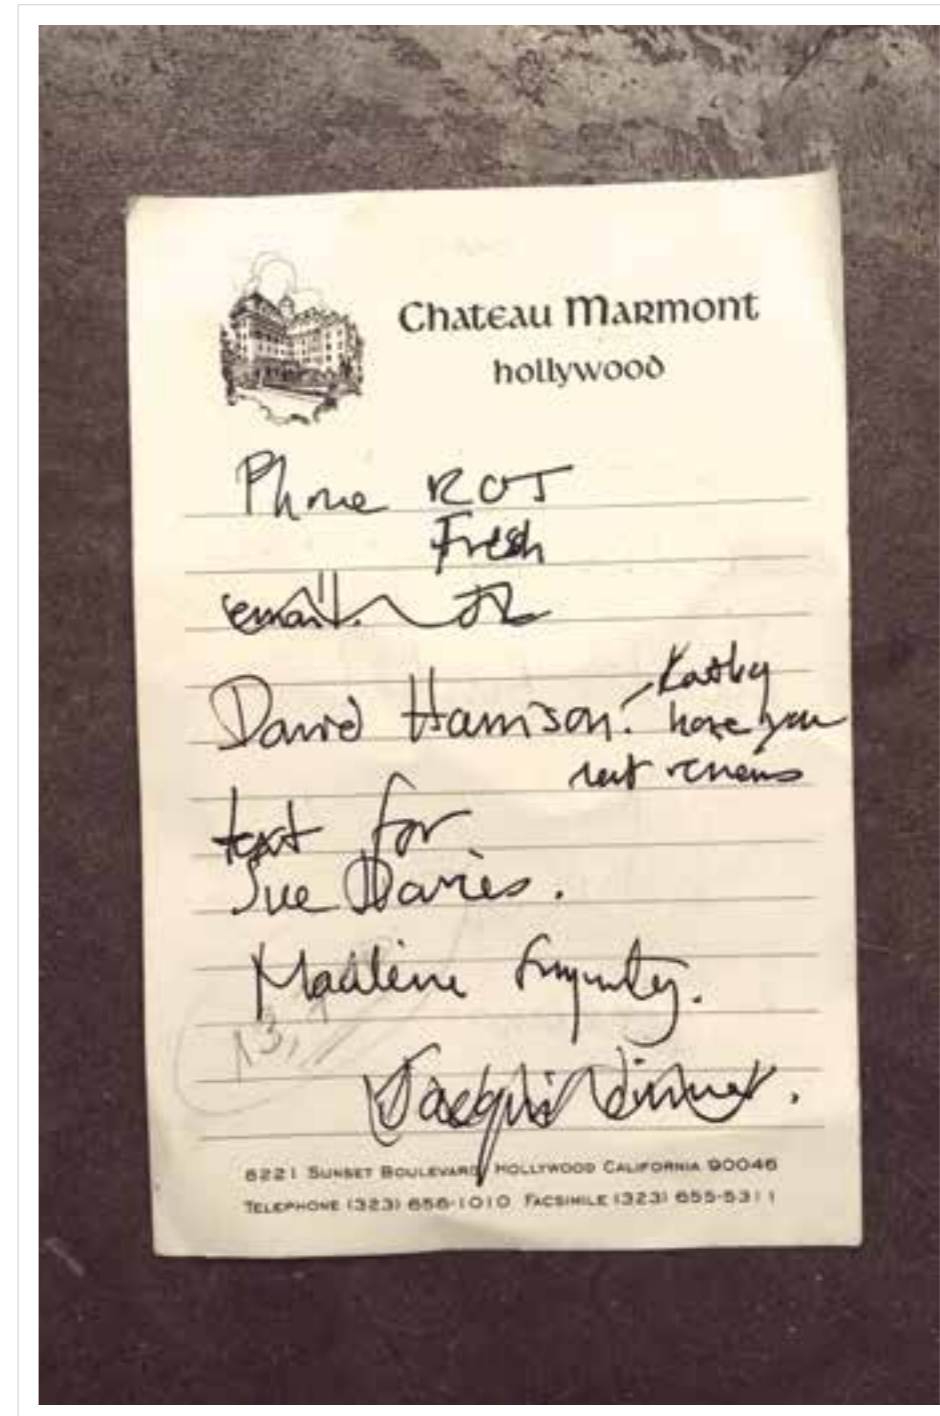 Chateau Marmont
hollywood
Phone ROT
Fresh
email.
David Harrison. - Kathy
have you
sent
text for
Sue Davies.
Madeleine
Jacqui Dinner.
13,
8221 Sunset Boulevard, Hollywood California 90046
Telephone (323) 656-1010 Facsimile (323) 655-5311